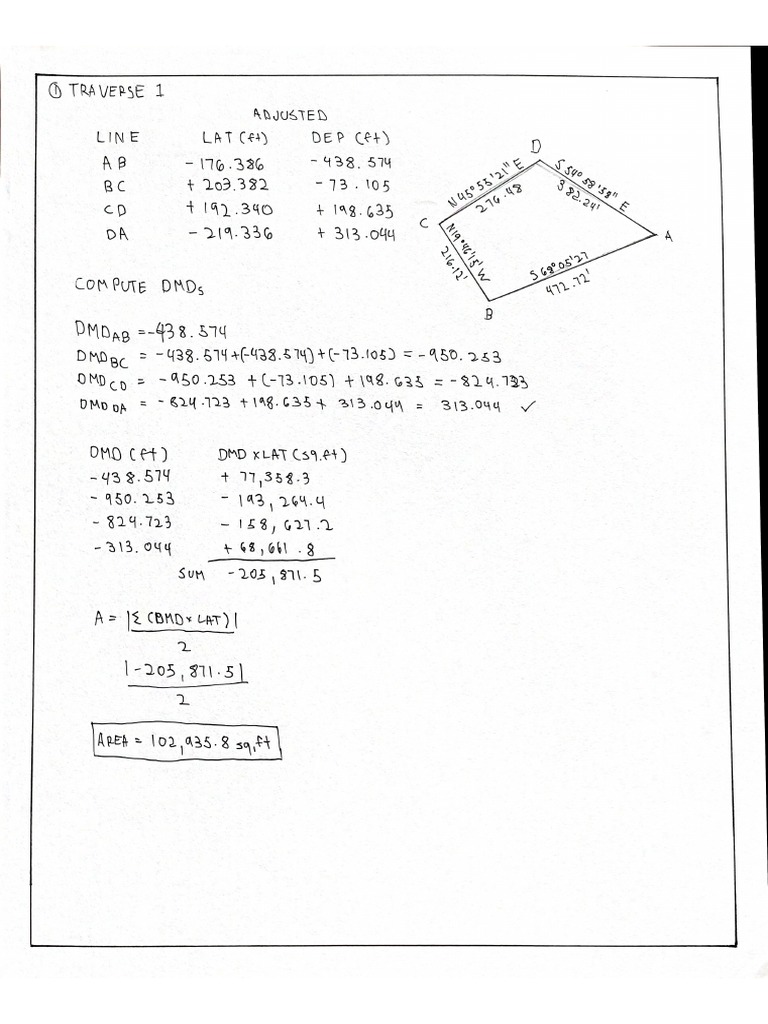 ① TRAVERSE 1
ADJUSTED
LINE LAT (ft) DEP (ft)
AB -176.386 -438.574
BC +203.382 -73.105
CD +192.340 +198.635
DA -219.336 +313.044
D
N 45°55'21" E
276.48
S 54°58'58" E
382.24'
C
A
N19°46'15" W
216.12'
S 68°05'27
472.72'
B
COMPUTE DMDs
DMD AB = -438.574
DMD BC = -438.574+(-438.574)+(-73.105) = -950.253
DMD CD = -950.253 +(-73.105) + 198.635 = -824.733
DMD DA = -824.723 +198.635+ 313.044 = 313.044 ✓
DMD (ft) DMD x LAT (sq.ft)
-438.574 + 77,358.3
-950.253 - 193,264.4
-824.723 - 158,627.2
-313.044 + 68,661.8
SUM -205,871.5
A = |Σ (DMD x LAT)|
2
|-205,871.5|
2
AREA = 102,935.8 sq.ft